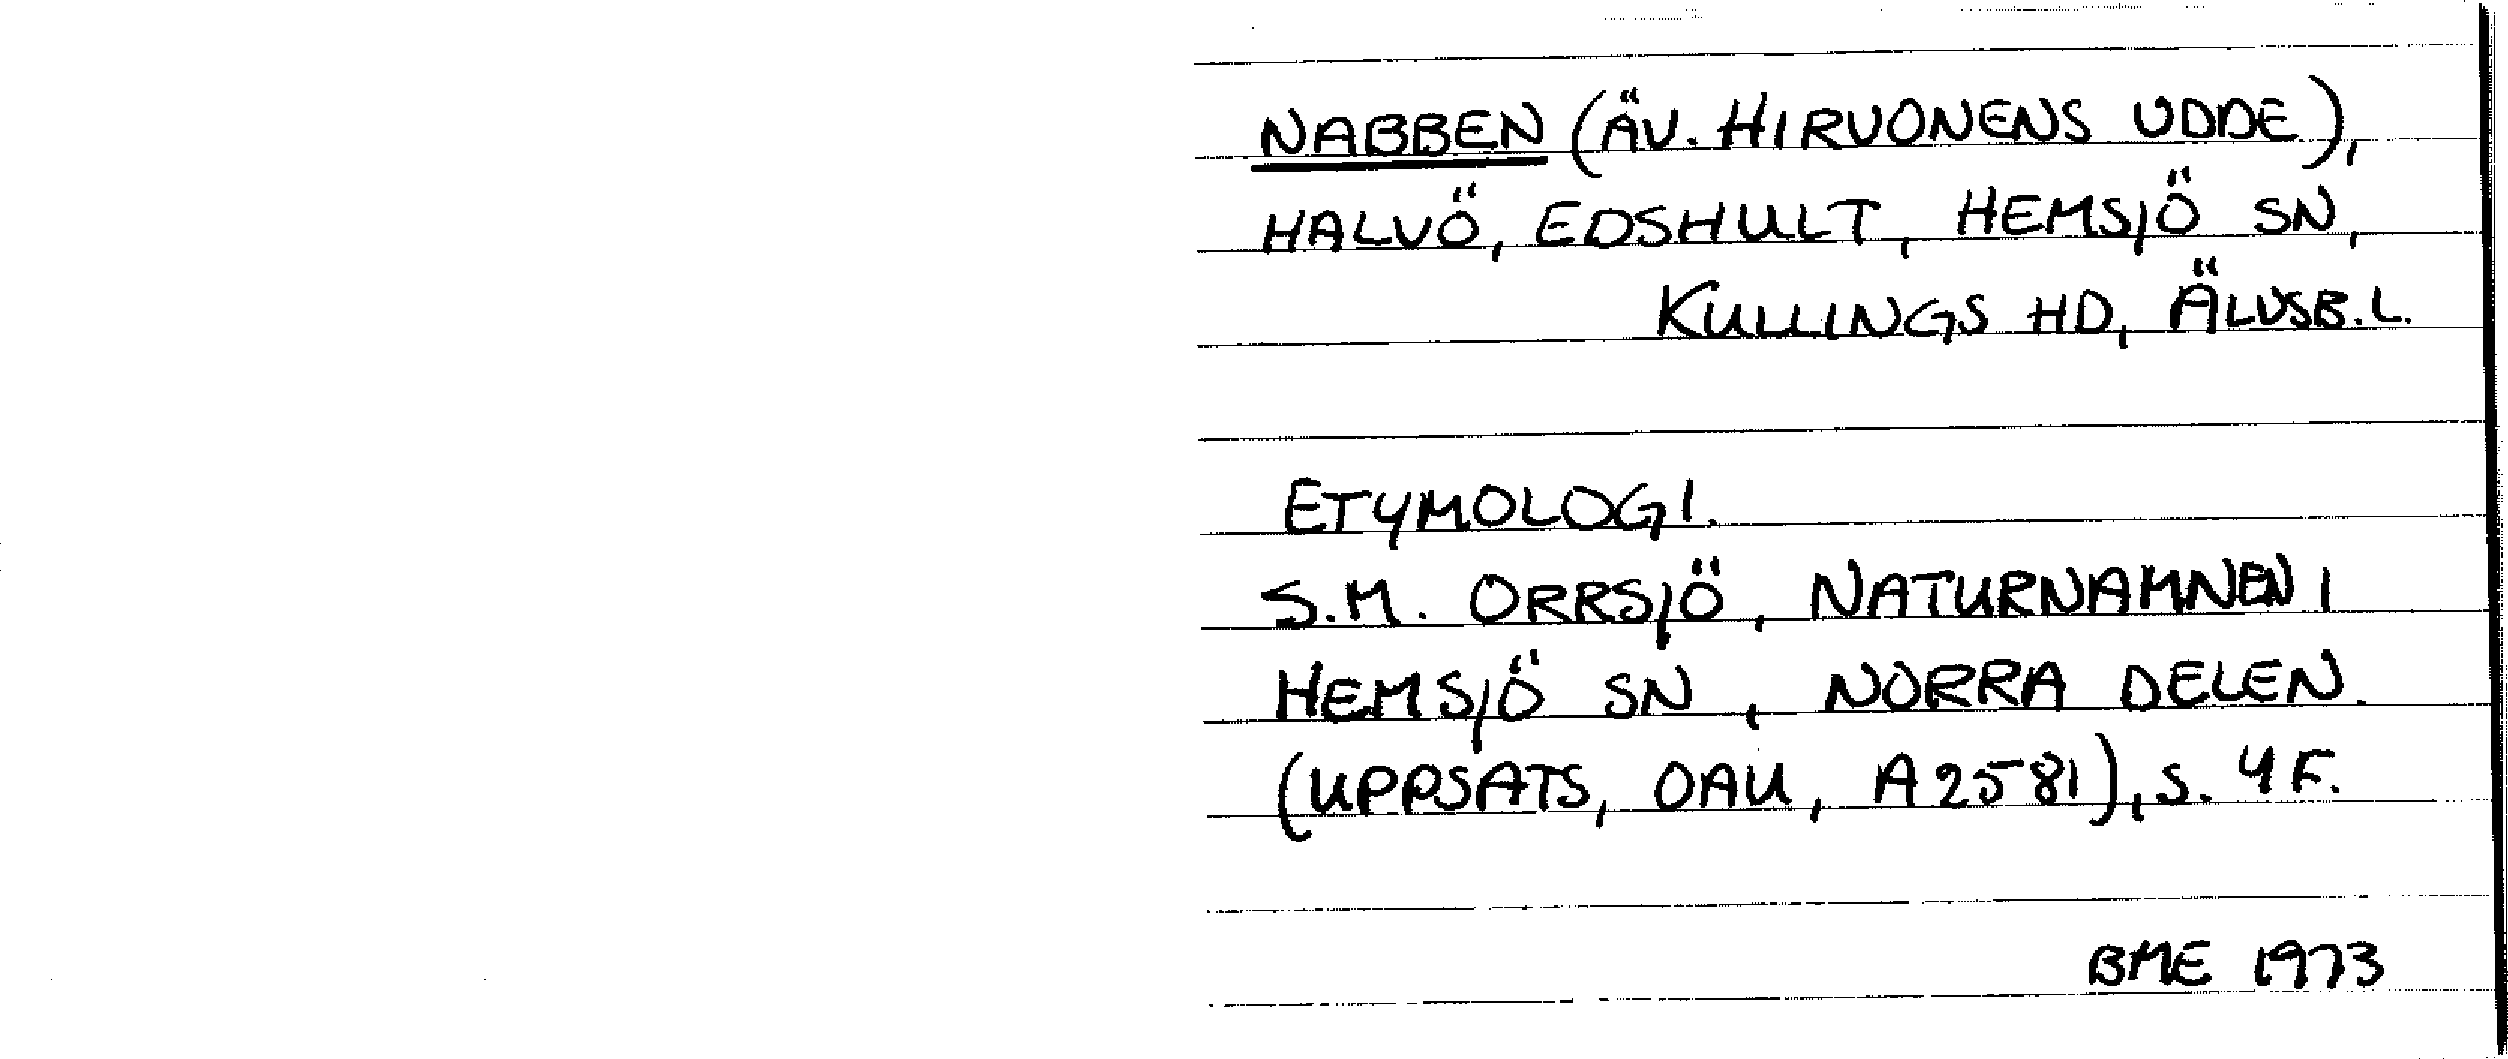 NABBEN (ÄV. HIRVONENS UDDE),
HALVÖ, EDSHULT, HEMSJÖ SN,
KULLINGS HD, ÄLVSB.L.
ETYMOLOGI.
S.M. ORRSJÖ, NATURNAMNEN I
HEMSJÖ SN, NORRA DELEN.
(UPPSATS, OAU, A2581), S. 4 F.
BME 1973